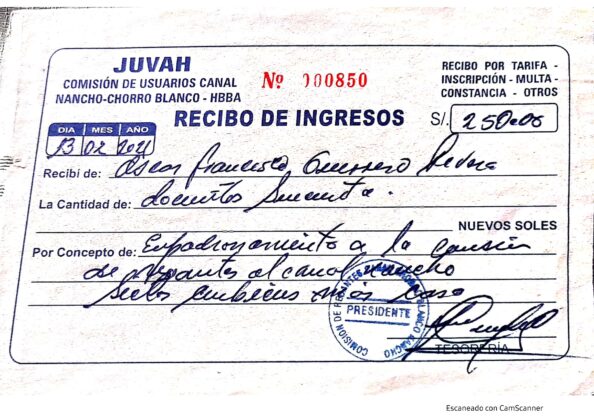 JUVAH
COMISIÓN DE USUARIOS CANAL
NANCHO-CHORRO BLANCO - HBBA
Nº 000850
RECIBO POR TARIFA -
INSCRIPCIÓN - MULTA -
CONSTANCIA - OTROS
RECIBO DE INGRESOS
S/. 250.00
DIA MES AÑO
13 02 2021
Recibí de: Oscar Francisco Guerrero
La Cantidad de: 
NUEVOS SOLES
Por Concepto de: Empadronamiento a la
de regantes al canal nancho
PRESIDENTE
TESORERÍA
Escaneado con CamScanner